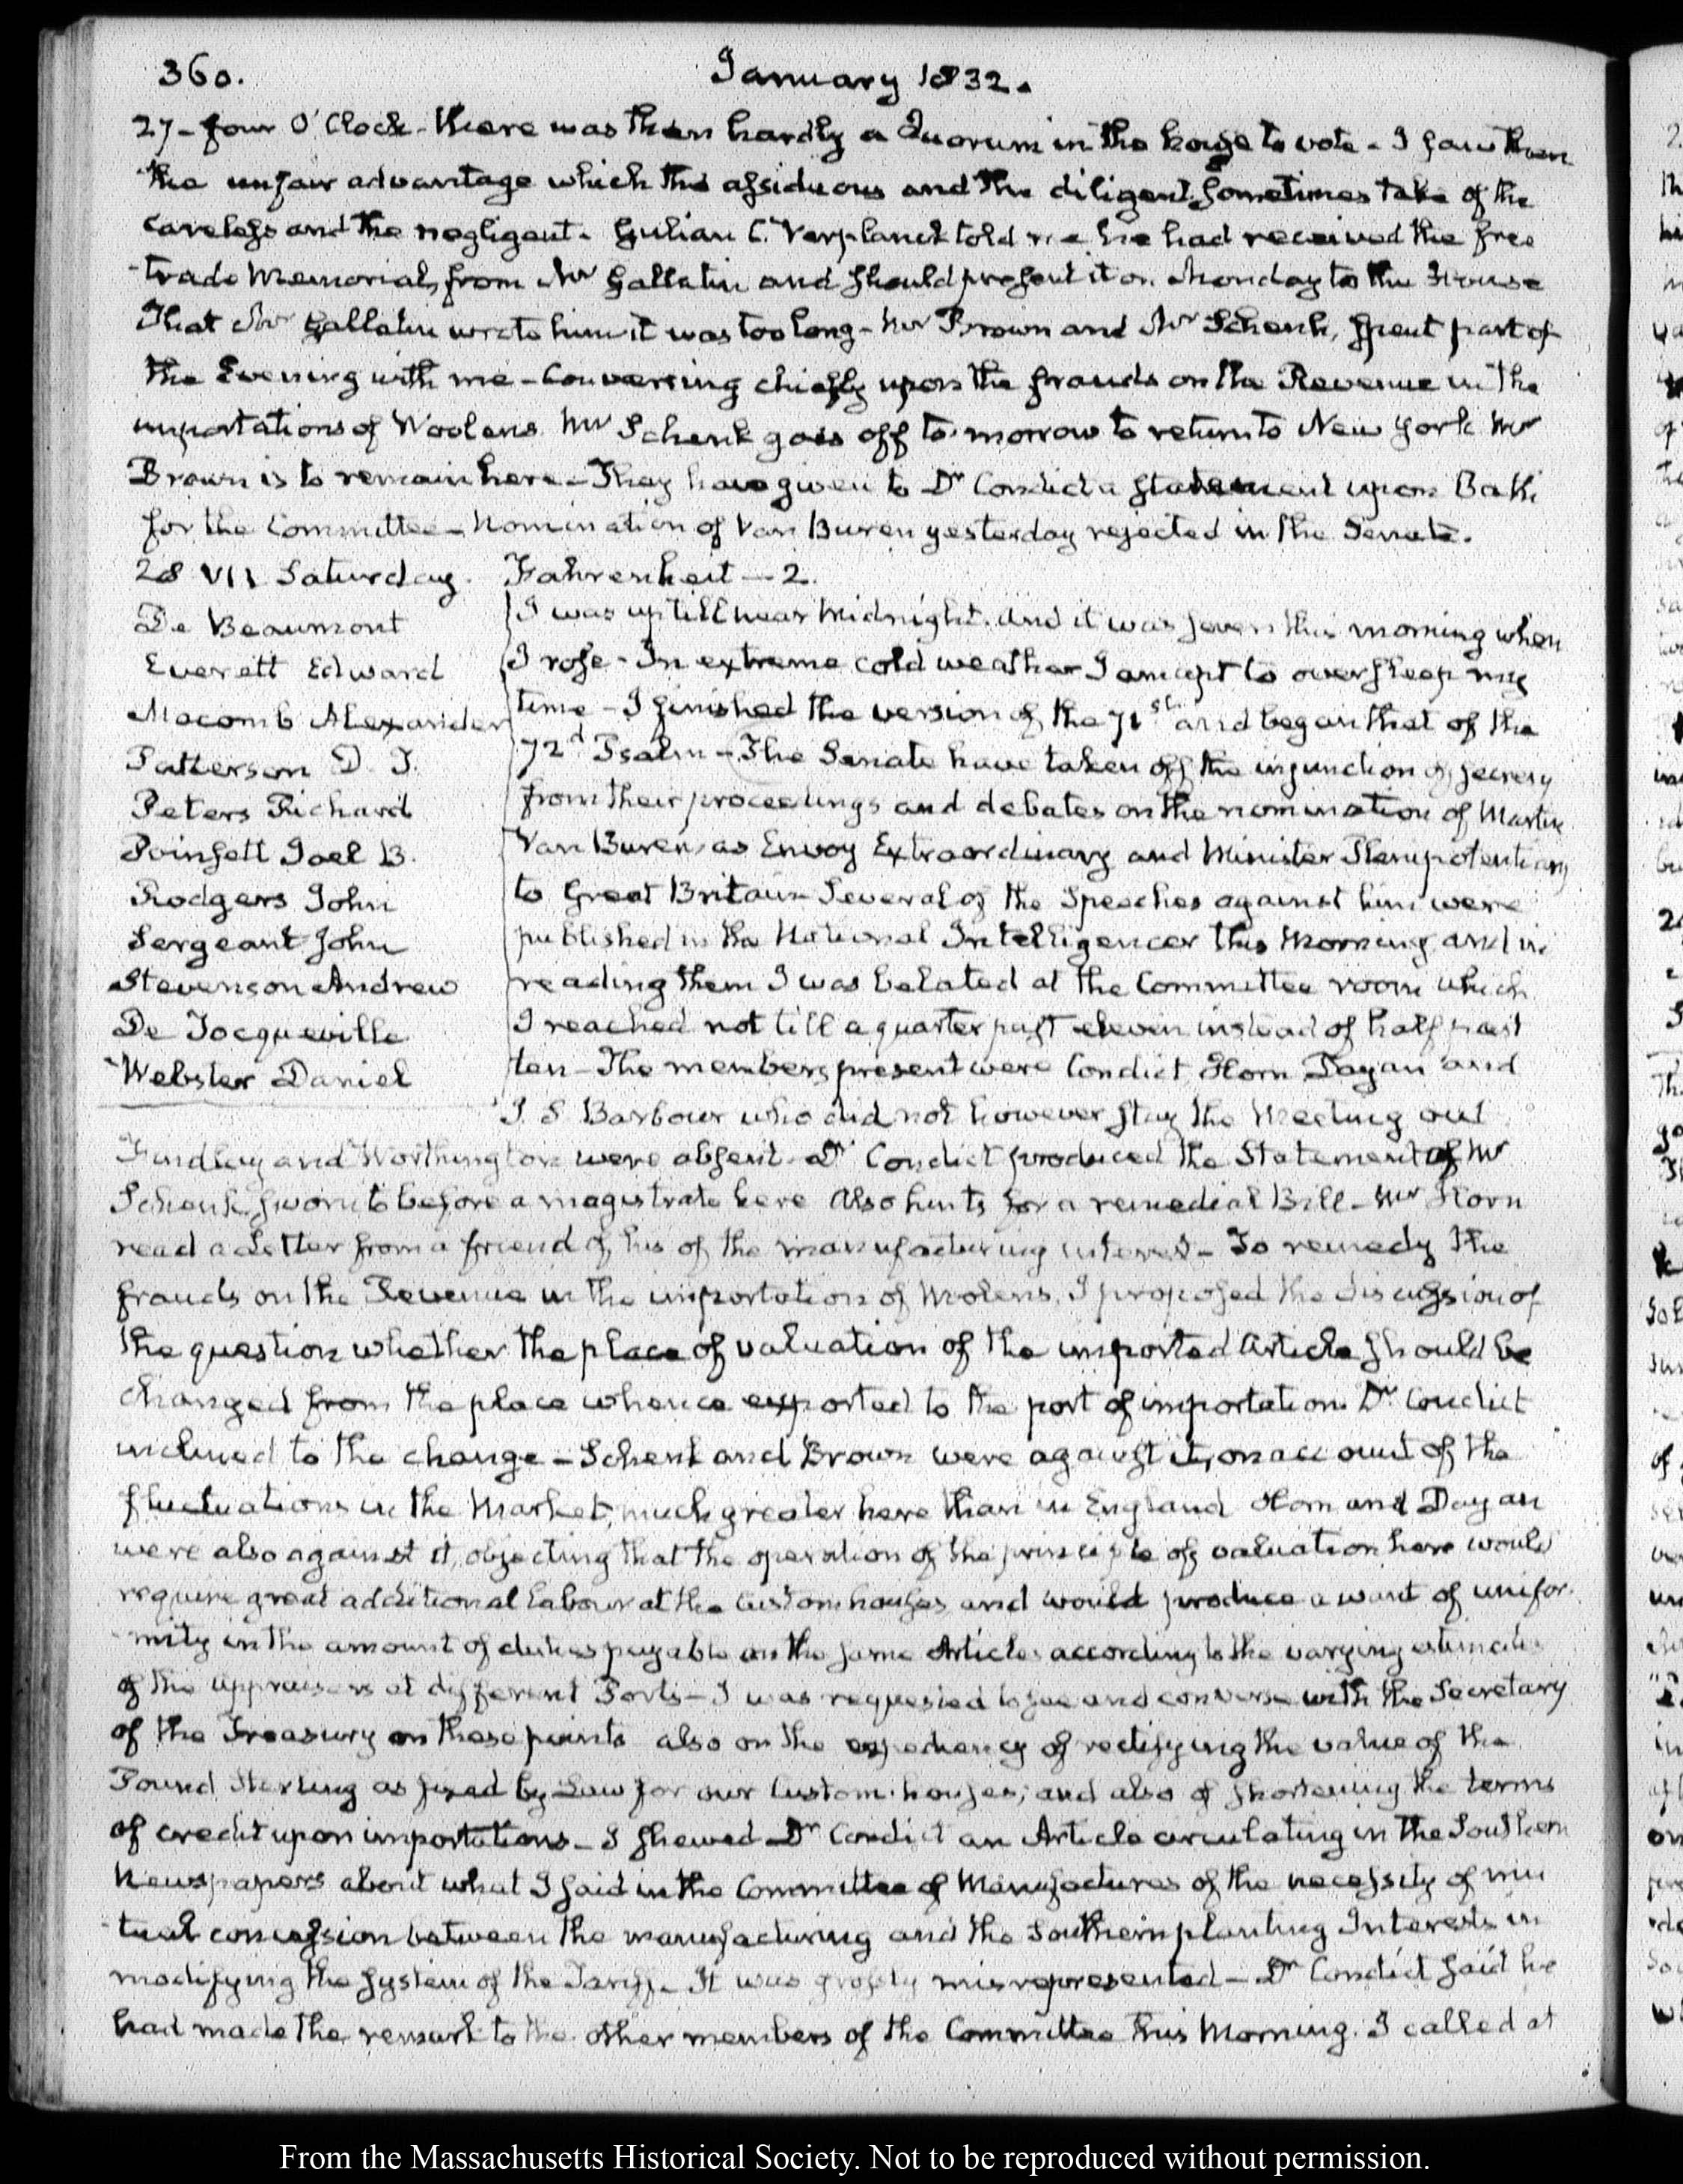 360.
January 1832.
27- four O'Clock- there was then hardly a Quorum in the house to vote- I saw then
the unfair advantage which the assiduous and the diligent, sometimes take of the
careless and the negligent- Gulian C. Verplanck told me he had received the free
trade Memorial, from Mr Gallatin and should present it on Monday to the House
That Mr Gallatin wrote him it was too long- Mr Brown and Mr Schenk, spent part of
the Evening with me- Conversing chiefly upon the frauds on the Revenue in the
importations of Woolens. Mr Schenk goes off to-morrow to return to New York Mr
Brown is to remain here- They have given to Dr Condict a statement upon Oath
for the Committee- Nomination of Van Buren yesterday rejected in the Senate.
28 VII Saturday. Fahrenheit - 2.
De Beaumont
Everett Edward
Macomb Alexander
Patterson D. T.
Peters Richard
Poinsett Joel B.
Rodgers John
Sergeant John
Stevenson Andrew
De Tocqueville
Webster Daniel
I was up till near Midnight. And it was seven this morning when
I rose- In extreme cold weather I am apt to oversleep my
time- I finished the version of the 71st and began that of the
72d Psalm- The Senate have taken off the injunction of secrecy
from their proceedings and debates on the nomination of Martin
Van Buren, as Envoy Extraordinary and Minister Plenipotentiary
to Great Britain- Several of the Speeches against him were
published in the National Intelligencer this Morning and in
reading them I was belated at the Committee room which
I reached not till a quarter past eleven instead of half past
ten- The members present were Condict, Horn Dayan and
J. S Barbour who did not however stay the Meeting out
Findlay and Worthington were absent- Dr Condict produced the Statement of Mr
Schenk, sworn to before a magistrate here Also hints for a remedial Bill- Mr Horn
read a Letter from a friend of his of the manufacturing interest- To remedy the
frauds on the Revenue in the importation of Wolens, I proposed the discussion of
the question whether the place of valuation of the imported Article should be
changed from the place whence exported to the port of importation. Dr Condict
inclined to the change- Schenk and Brown were against it, on account of the
fluctuations in the Market, much greater here than in England Horn and Dayan
were also against it, objecting that the operation of the principle of valuation here would
require great additional labour at the Custom houses, and would produce a want of unifor-
mity in the amount of duties payable on the same Articles according to the varying estimates
of the appraisers at different Ports- I was requested to see and converse with the Secretary
of the Treasury on these points also on the expediency of rectifying the value of the
Pound Sterling as fixed by Law for our Custom-houses; and also of shortening the terms
of credit upon importations- I shewed Dr Condict an Article circulating in the Southern
Newspapers about what I said in the Committee of Manufactures of the necessity of mu
tual concession between the manufacturing and the Southern planting Interests in
modifying the system of the Tariff- It was grossly misrepresented- Dr Condict said he
had made the remark to the other members of the Committee this Morning. I called at
From the Massachusetts Historical Society. Not to be reproduced without permission.